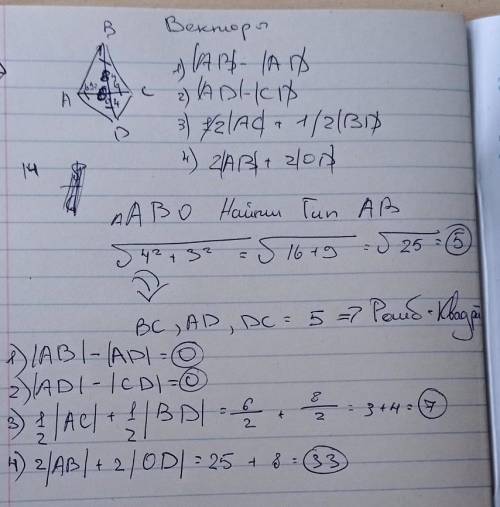 B
Векторы
A
C
D
1) |AB| - |AD|
2) |AD| - |CD|
3) 1/2|AC| + 1/2|BD|
4) 2|AB| + 2|OD|
14
△ABO Найти Гип AB
√4² + 3² = √16 + 9 = √25 = 5
BC, AD, DC = 5 => Ромб-Квадр
1) |AB| - |AD| = 0
2) |AD| - |CD| = 0
3) 1/2 |AC| + 1/2 |BD| = 6/2 + 8/2 = 3+4 = 7
4) 2|AB| + 2|OD| = 25 + 8 = 33